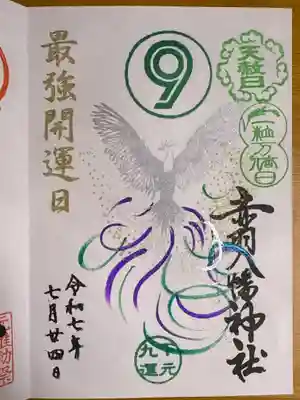 天赦日
一粒万倍日
赤羽八幡神社
9
下元
九運
最強開運日
令和七年
七月廿四日